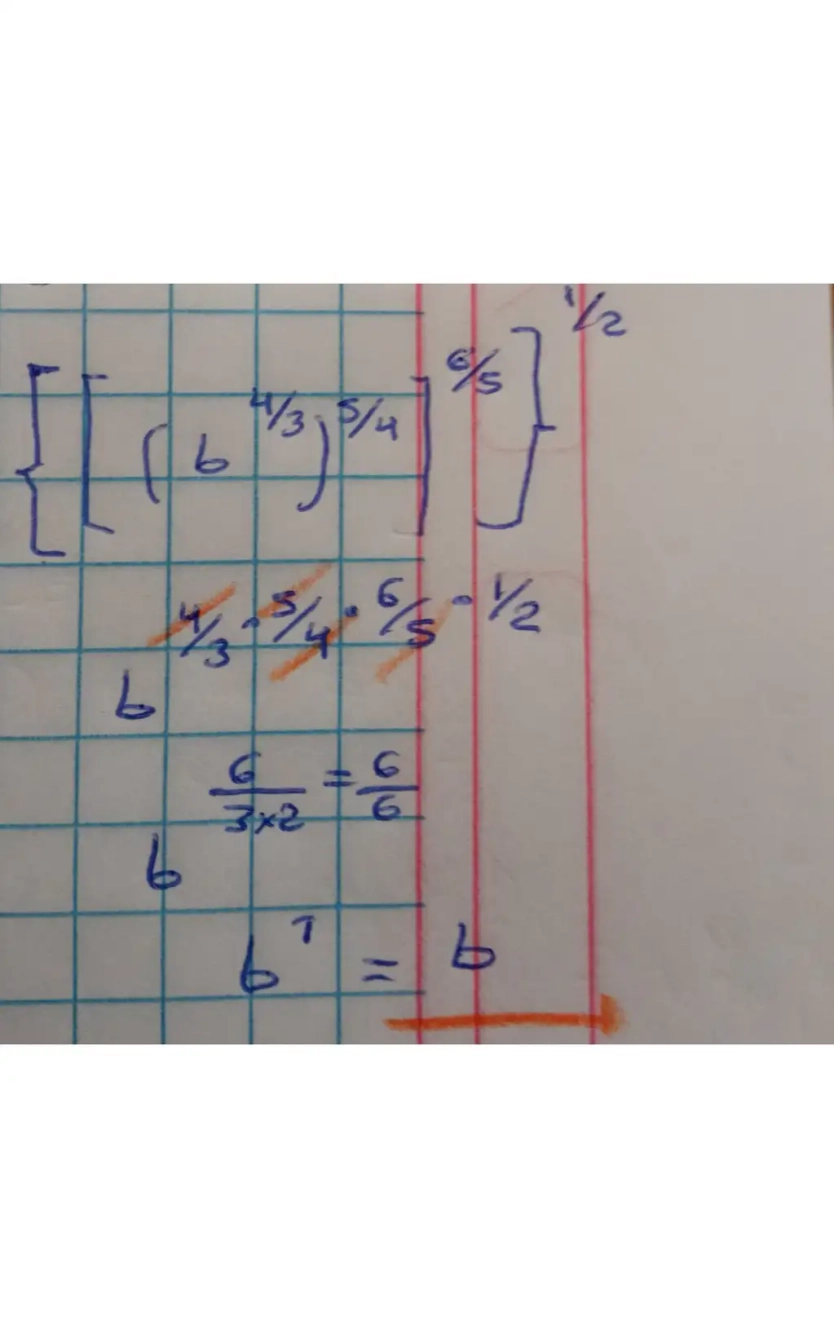 {[(b^4/3)^5/4]^6/5}^1/2
b^4/3 · 5/4 · 6/5 · 1/2
b^6/3×2 = 6/6
b^1 = b